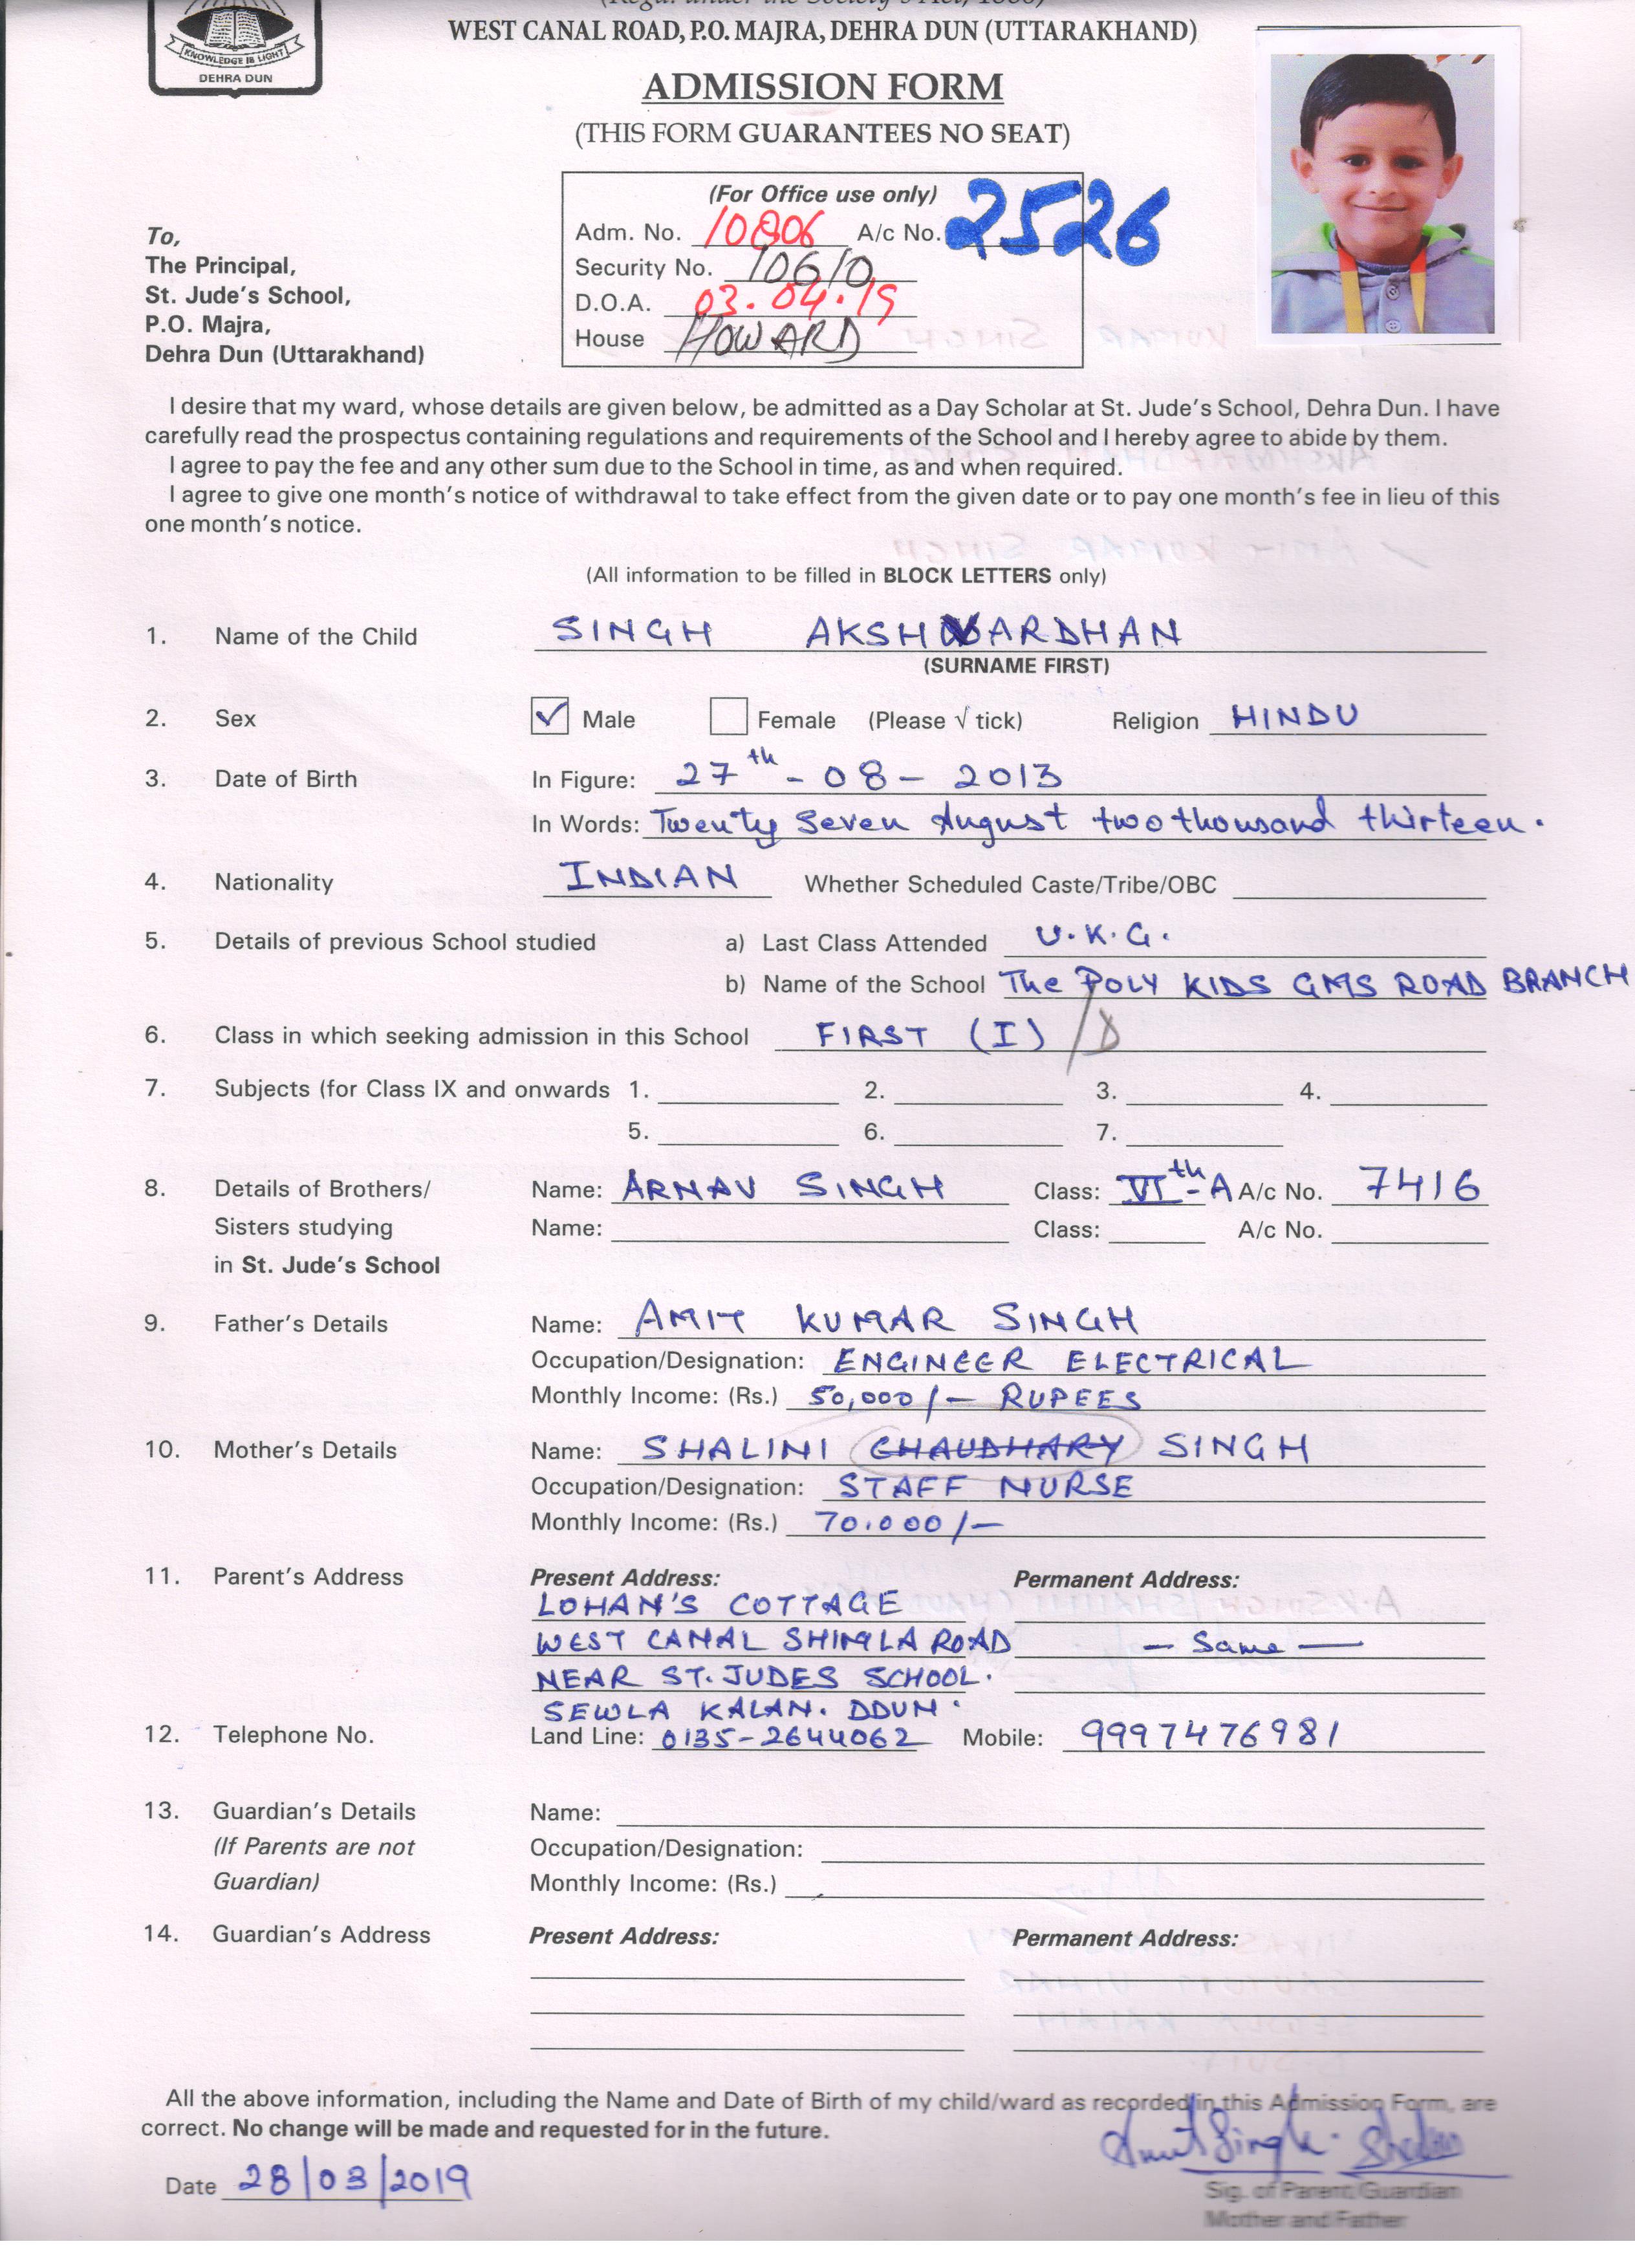 (Regd. under the Society's Act, 1860)
WEST CANAL ROAD, P.O. MAJRA, DEHRA DUN (UTTARAKHAND)
KNOWLEDGE IS LIGHT
DEHRA DUN
ADMISSION FORM
(THIS FORM GUARANTEES NO SEAT)
(For Office use only)
Adm. No. 10806 A/c No. 2526
Security No. 10610
D.O.A. 03.04.19
House HOWARD
To,
The Principal,
St. Jude's School,
P.O. Majra,
Dehra Dun (Uttarakhand)
I desire that my ward, whose details are given below, be admitted as a Day Scholar at St. Jude's School, Dehra Dun. I have
carefully read the prospectus containing regulations and requirements of the School and I hereby agree to abide by them.
I agree to pay the fee and any other sum due to the School in time, as and when required.
I agree to give one month's notice of withdrawal to take effect from the given date or to pay one month's fee in lieu of this
one month's notice.
(All information to be filled in BLOCK LETTERS only)
1. Name of the Child SINGH AKSHVARDHAN
(SURNAME FIRST)
2. Sex ✓ Male Female (Please √ tick) Religion HINDU
3. Date of Birth In Figure: 27th - 08 - 2013
In Words: Twenty Seven August two thousand thirteen.
4. Nationality INDIAN Whether Scheduled Caste/Tribe/OBC
5. Details of previous School studied a) Last Class Attended U.K.G.
b) Name of the School The POLY KIDS GMS ROAD BRANCH
6. Class in which seeking admission in this School FIRST (I) /D
7. Subjects (for Class IX and onwards 1. 2. 3. 4.
5. 6. 7.
8. Details of Brothers/ Name: ARNAV SINGH Class: VIth-A A/c No. 7416
Sisters studying Name: Class: A/c No.
in St. Jude's School
9. Father's Details Name: AMIT KUMAR SINGH
Occupation/Designation: ENGINEER ELECTRICAL
Monthly Income: (Rs.) 50,000/- RUPEES
10. Mother's Details Name: SHALINI CHAUDHARY SINGH
Occupation/Designation: STAFF NURSE
Monthly Income: (Rs.) 70.000/-
11. Parent's Address Present Address: Permanent Address:
LOHAN'S COTTAGE
WEST CANAL SHIMLA ROAD - Same -
NEAR ST. JUDES SCHOOL.
SEWLA KALAN. DDUN.
12. Telephone No. Land Line: 0135-2644062 Mobile: 9997476981
13. Guardian's Details Name:
(If Parents are not Occupation/Designation:
Guardian) Monthly Income: (Rs.)
14. Guardian's Address Present Address: Permanent Address:
All the above information, including the Name and Date of Birth of my child/ward as recorded in this Admission Form, are
correct. No change will be made and requested for in the future.
Amit Singh.
Date 28/03/2019
Sig. of Parent/Guardian
Mother and Father